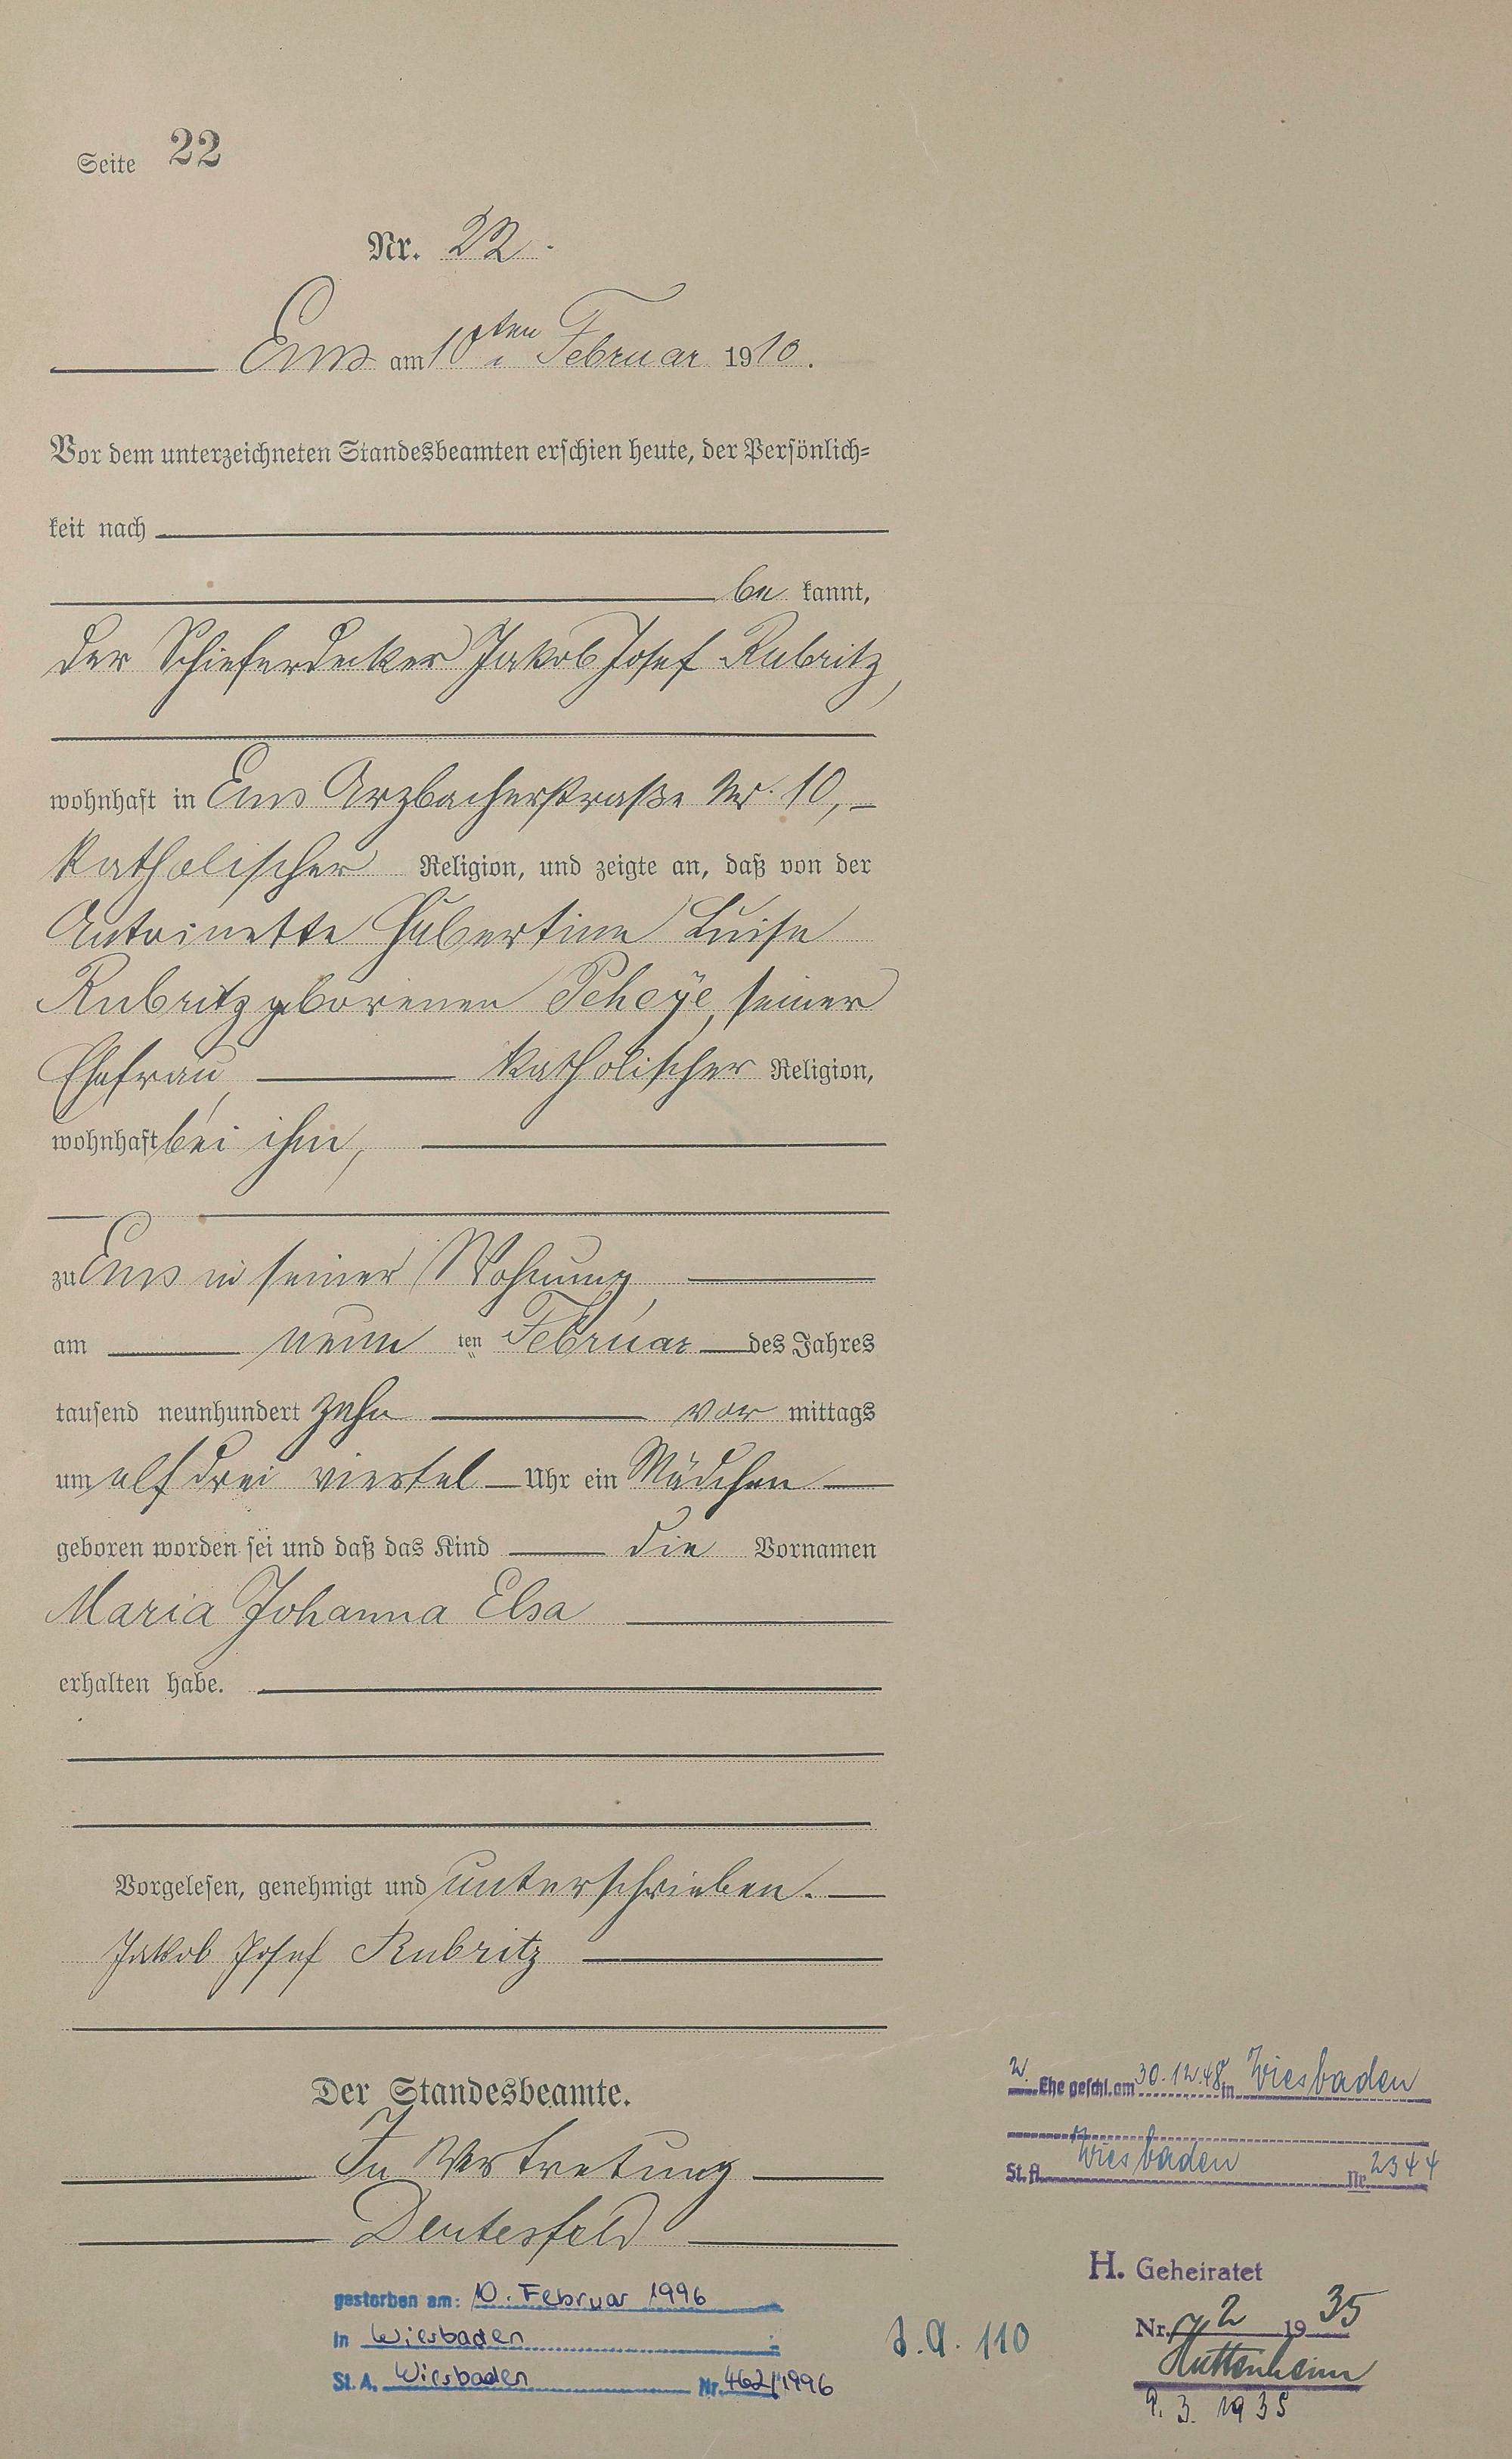 Seite 22
Nr. 22.
Ems am 10ten Februar 1910.
Vor dem unterzeichneten Standesbeamten erschien heute, der Persönlich-
keit nach
be kannt,
der Schieferdecker Jakob Josef Rubritz,
wohnhaft in Ems Arzbacherstraße Nr. 10,
katholischer Religion, und zeigte an, daß von der
Antoinette Hubertine Luise
Rubritz geborenen Peheye, seiner
Ehefrau, katholischer Religion,
wohnhaft bei ihm,
zu Ems in seiner Wohnung,
am neun ten Februar des Jahres
tausend neunhundert zehn vor mittags
um elf drei viertel Uhr ein Mädchen
geboren worden sei und daß das Kind die Vornamen
Maria Johanna Elsa
erhalten habe.
Vorgelesen, genehmigt und unterschrieben.
Jakob Josef Rubritz
Der Standesbeamte.
In Vertretung
Deutesfeld
gestorben am: 10. Februar 1996
in Wiesbaden
St. A. Wiesbaden Nr. 462/1996
2. Ehe geschl. am 30.12.48 in Wiesbaden
St. A. Wiesbaden Nr. 2344
H. Geheiratet
Nr. 2 1935
Huttenheim
9. 3. 1935
S.A. 110